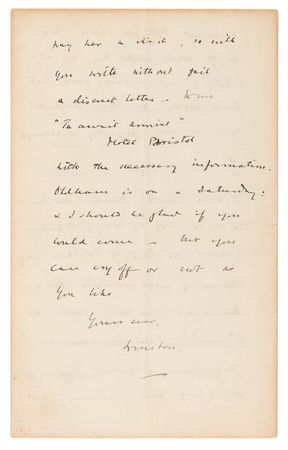 pay her a visit, so will
you write without fail
a discreet letter – to me
"To await arrival"
Hotel Bristol
with the necessary information.
Oldham is on a Saturday:
& I should be glad if you
would come – but you
can cry off or not as
you like
Yours ever,
Winston.